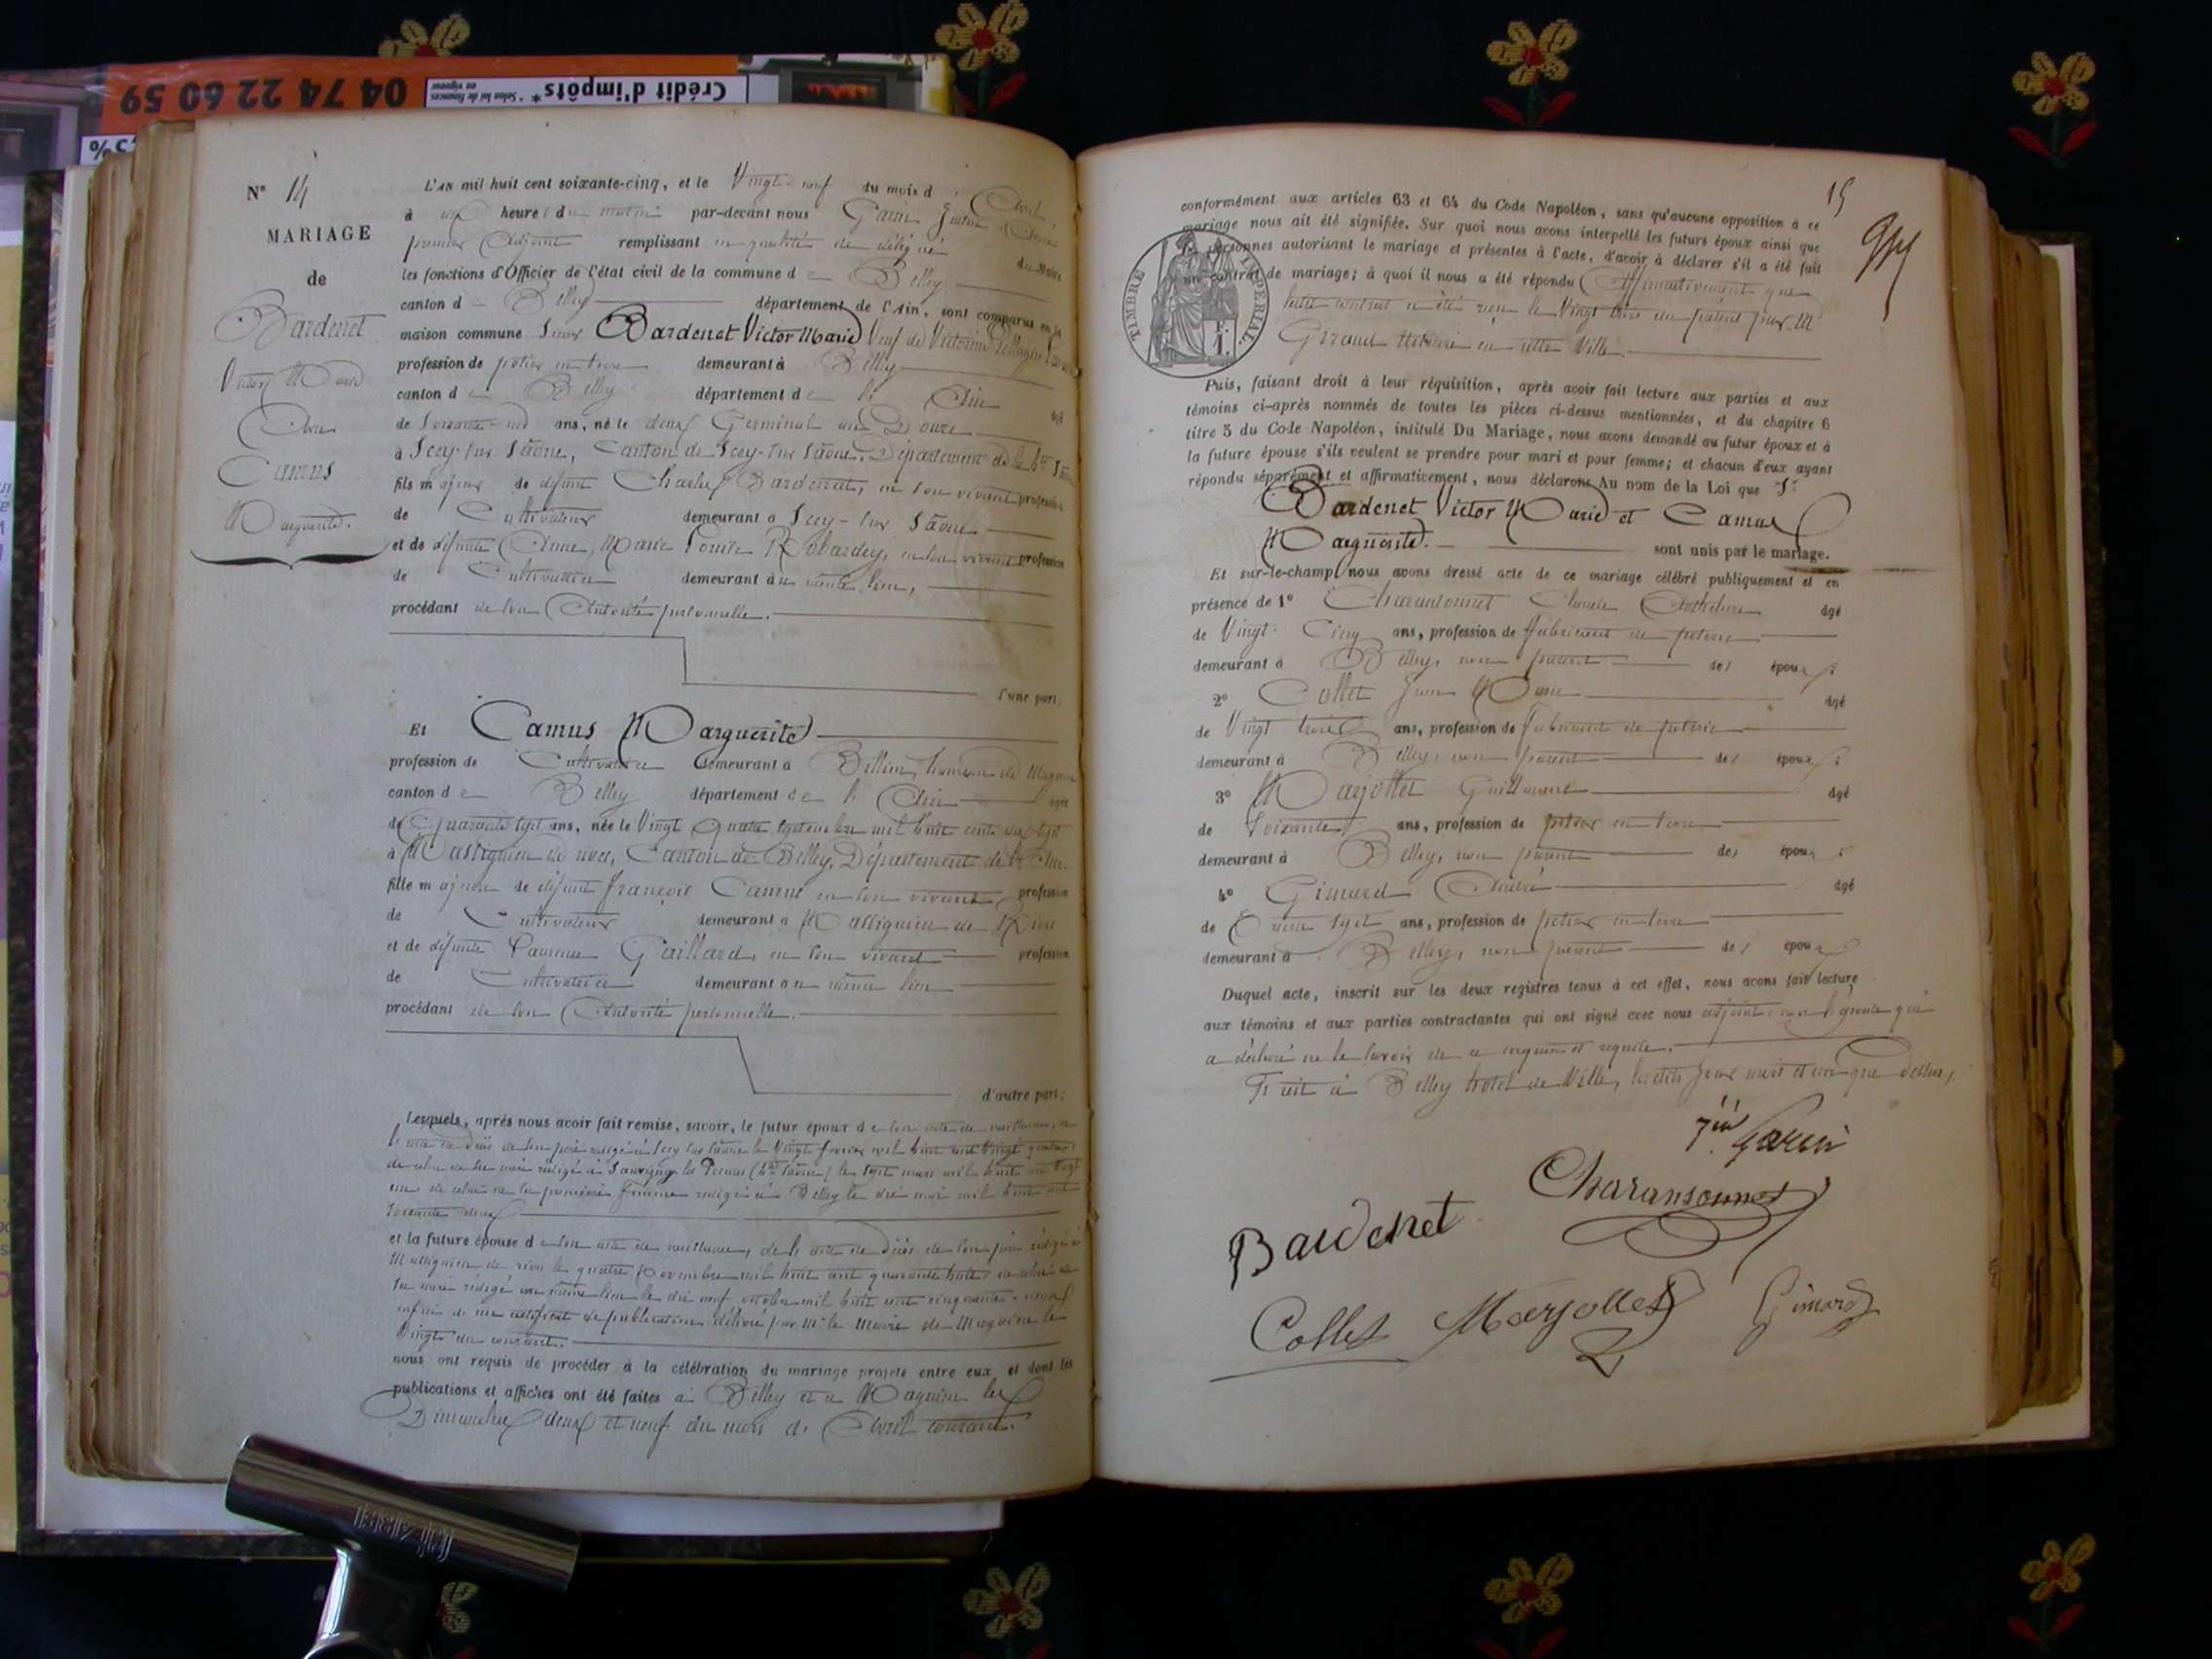 04 74 22 60 59
Crédit d'impôts*
* Selon loi de finances
en vigueur
N° 14
MARIAGE
de
Bardenet
Victor Marie
Avec
Camus
Marguerite.
L'AN mil huit cent soixante-cinq, et le Vingt-neuf du mois d'Avril
à heure du matin par-devant nous Garin
premier Adjoint remplissant en qualité de délégué du Maire
les fonctions d'Officier de l'état civil de la commune de Belley
canton de Belley département de l'Ain, sont comparus en la
maison commune Sieur Bardenet Victor Marie Veuf de Victorine
profession de potier en terre demeurant à Belley
canton de Belley département de l'Ain âgé
de Soixante-un ans, né le deux Germinal an Douze
à Scey-sur Saône, Canton de Scey-sur Saône, Département de la Hte Saône
fils majeur de défunt Charles Bardenet, en son vivant profession
de Cultivateur demeurant à Scey-sur Saône
et de défunte Anne Marie Louise Robardey, en son vivant profession
de Cultivatrice demeurant au même lieu,
procédant de son Autorité personnelle.
d'une part;
Et Camus Marguerite
profession de Cultivatrice demeurant à Billieu, hameau de Magnieu
canton de Belley département de l'Ain âgée
de Quarante sept ans, née le Vingt Quatre Septembre mil huit cent dix sept
à Massignieu de rives, Canton de Belley, Département de l'Ain.
fille majeure de défunt François Camus en son vivant profession
de Cultivateur demeurant à Massignieu de Rives
et de défunte Laurence Gaillard, en son vivant profession
de Cultivatrice demeurant au même lieu
procédant de son Autorité personnelle.
d'autre part;
Lesquels, après nous avoir fait remise, savoir, le futur époux de son acte de naissance, de
l'acte de décès de son père rédigé à Scey sur Saône le Vingt février mil huit cent Vingt quatre,
de celui de sa mère rédigé à Sauvigny les Pesmes (Hte Saône) le sept mars mil huit cent Vingt
un, de celui de sa première femme rédigé à Belley le dix mai mil huit cent
soixante deux
et la future épouse de son acte de naissance, de l'acte de décès de son père rédigé à
Massignieu de rives le quatre Novembre mil huit cent quarante huit, de celui de
sa mère rédigé au même lieu le dix neuf octobre mil huit cent cinquante-neuf
enfin de un certificat de publications délivré par Mr le Maire de Magnieu le
Vingt du courant.
nous ont requis de procéder à la célébration du mariage projeté entre eux et dont les
publications et affiches ont été faites à Belley et à Magnieu les
Dimanches deux et neuf du mois d'Avril courant.
15
conformément aux articles 63 et 64 du Code Napoléon, sans qu'aucune opposition à ce
mariage nous ait été signifiée. Sur quoi nous avons interpellé les futurs époux ainsi que
les personnes autorisant le mariage et présentes à l'acte, d'avoir à déclarer s'il a été fait
un contrat de mariage; à quoi il nous a été répondu Affirmativement que
ledit contrat a été reçu le Vingt trois du présent par Me
Giraud Notaire en cette Ville.
TIMBRE IMPERIAL.
1 F.
Puis, faisant droit à leur réquisition, après avoir fait lecture aux parties et aux
témoins ci-après nommés de toutes les pièces ci-dessus mentionnées, et du chapitre 6
titre 5 du Code Napoléon, intitulé Du Mariage, nous avons demandé au futur époux et à
la future épouse s'ils veulent se prendre pour mari et pour femme; et chacun d'eux ayant
répondu séparément et affirmativement, nous déclarons Au nom de la Loi que Sr
Bardenet Victor Marie et Camus
Marguerite. sont unis par le mariage.
Et sur-le-champ nous avons dressé acte de ce mariage célébré publiquement et en
présence de 1° Charansonnet Claude Anthelme âgé
de Vingt Cinq ans, profession de fabricant de poterie
demeurant à Belley, non parent des époux;
2° Collet Jean Marie âgé
de Vingt trois ans, profession de fabricant de poterie
demeurant à Belley, non parent des époux;
3° Marjollet Guillaume âgé
de Soixante ans, profession de potier en terre
demeurant à Belley, non parent des époux;
4° Gimard André âgé
de sept ans, profession de potier en terre
demeurant à Belley, non parent des époux
Duquel acte, inscrit sur les deux registres tenus à cet effet, nous avons fait lecture
aux témoins et aux parties contractantes qui ont signé avec nous adjoint, non l'épouse qui
a déclaré ne le savoir de ce enquise et requise.
Fait à Belley hotel de Ville, lesdits jour mois et an que dessus.
Garin
Charansonnet
Bardenet
Collet Marjollet Gimard